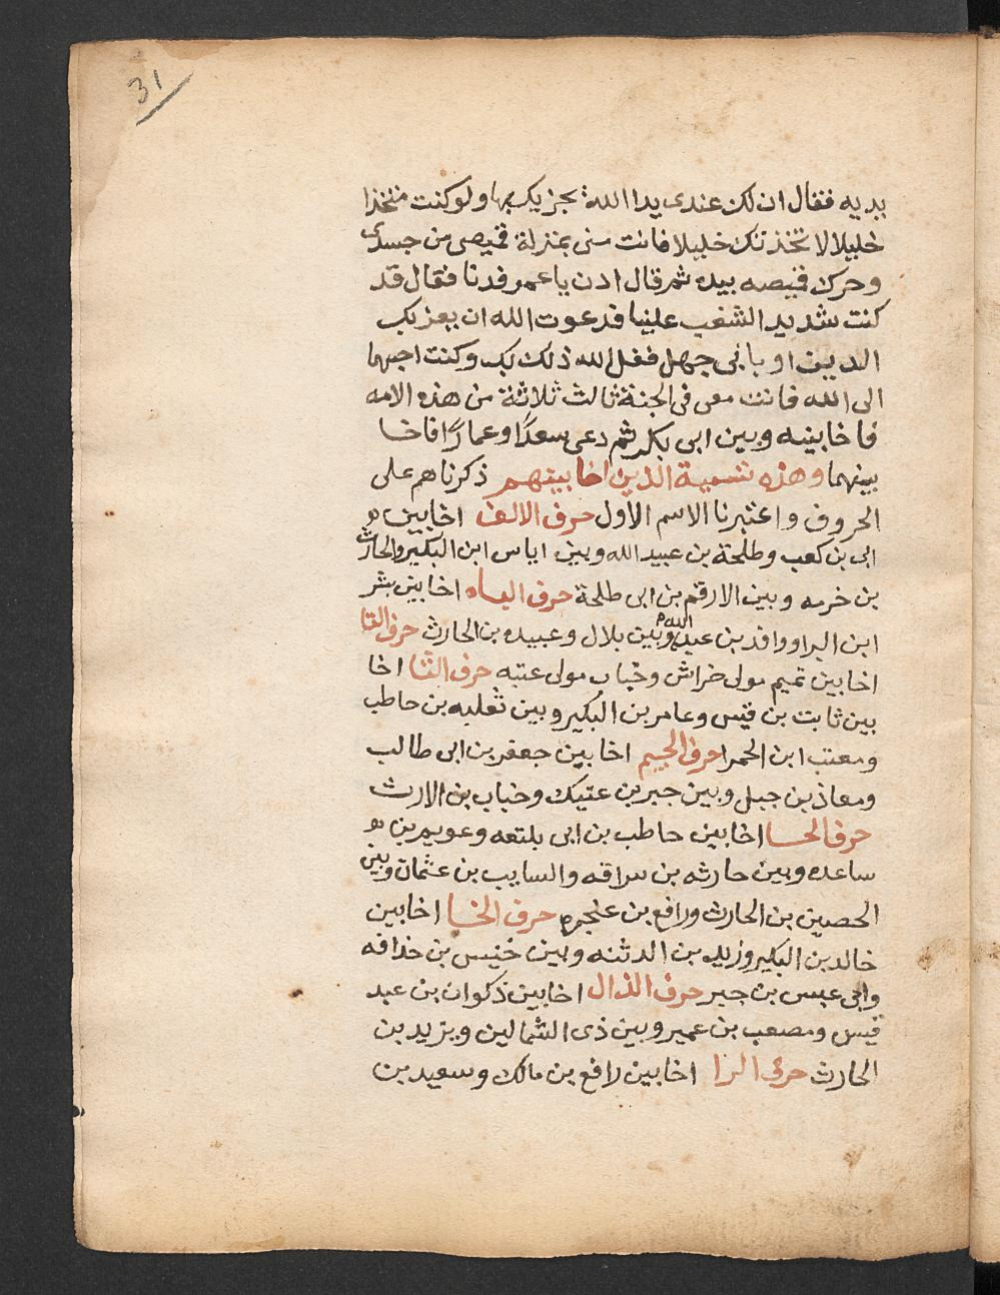 31
يديه فقال ان لك عندى يدا الله يجزيك بها ولو كنت متخذا
خليلا لا تخذتك خليلا فانت منى بمنزلة قميصى من جسدى
وحرك قميصه بيده ثم قال ادن يا عمر فدنا فقال قد
كنت شديد الشغب علينا فدعوت الله ان يعز بك
الدين او بابى جهل ففعل الله ذلك بك وكنت احبهما
الى الله فانت معى فى الجنة ثالث ثلاثة من هذه الامه
فاخا بينه وبين ابى بكر ثم دعى سعدًا وعمارًا فاخا
بينهما وهذه تسمية الذين اخا بينهم ذكرناهم على
الحروف واعتبرنا الاسم الاول حرف الالف اخا بين
ابى بن كعب وطلحة بن عبيد الله وبين اياس ابن البكير والحارث
بن خرمه وبين الارقم بن ابى طلحة حرف الباء اخا بين بشر
ابن البراو واقد بن عبد الله وبين بلال وعبيده بن الحارث حرف التا
اخا بين تميم مولى خراش وخباب مولى عتبه حرف الثا اخا
بين ثابت بن قيس وعامر بن البكير وبين ثعلبه بن حاطب
ومعتب ابن الحمرا حرف الجيم اخا بين جعفر بن ابى طالب
ومعاذ بن جبل وبين جبر بن عتيك وخباب بن الارث
حرف الحا اخا بين حاطب بن ابى بلتعه وعويم بن
ساعده وبين حارثه بن سراقه والسايب بن عثمان وبين
الحصين بن الحارث ورافع بن عنجره حرف الخا اخا بين
خالد بن البكير وزيد بن الدثنه وبين خنيس بن حذافه
وابى عبس بن جبر حرف الذال اخا بين ذكوان بن عبد
قيس ومصعب بن عمير وبين ذى الشمالين ويزيد بن
الحارث حرف الرا اخا بين رافع بن مالك وسعيد بن